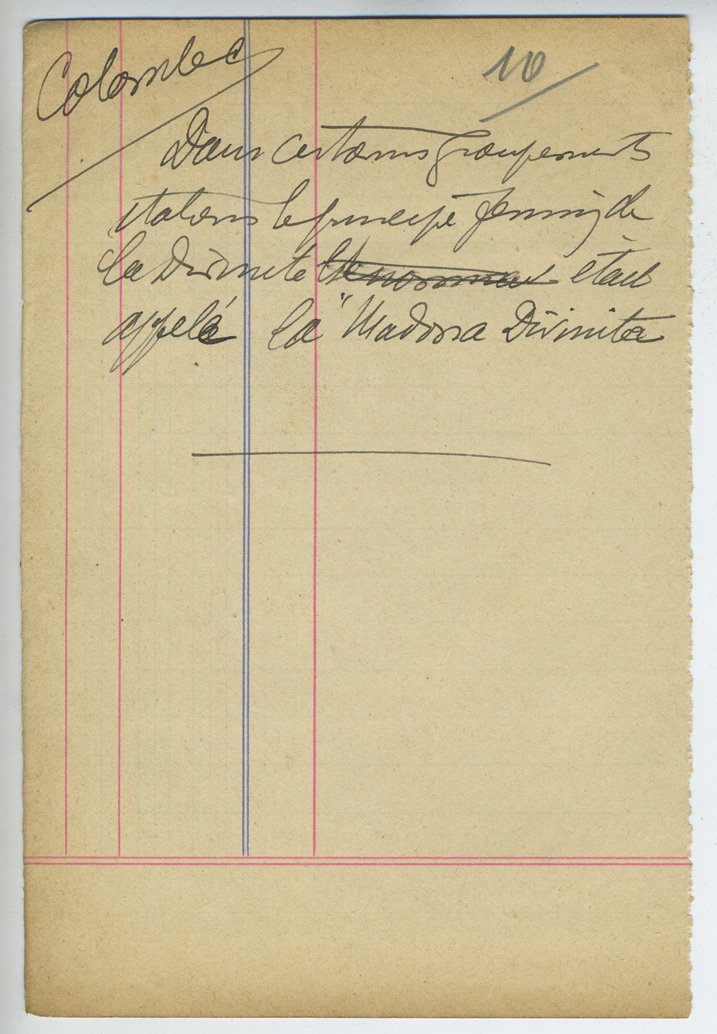 Colombe
10
Dans certains groupements
italiens le principe féminin de
la Divinité était
appelé la "Madona Divinita